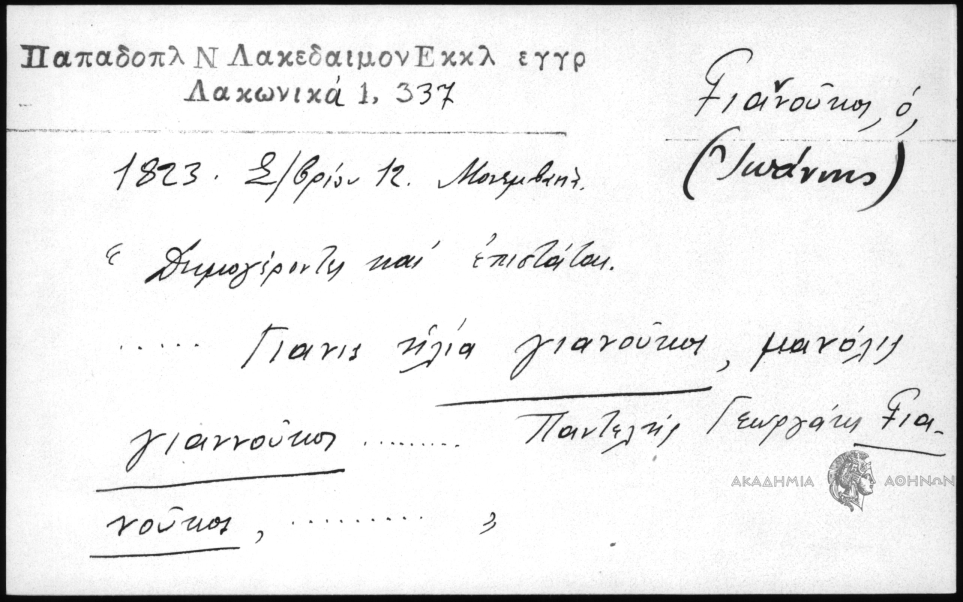 Παπαδοπλ Ν Λακεδαιμον Εκκλ εγγρ
Λακωνικά 1, 337
Γιανούκος, ὁ,
(Ἰωάννης)
1823. Σ/βρίου 12. Μονεμβασία.
“ Δημογέροντες καί ἐπιστάται.
..... Γιανις ηλία γιανούκος, μανόλις
γιαννούκος ........ Παντελής Γεωργάκης Για-
νούκος, .......... ”
ΑΚΑΔΗΜΙΑ ΑΘΗΝΩΝ